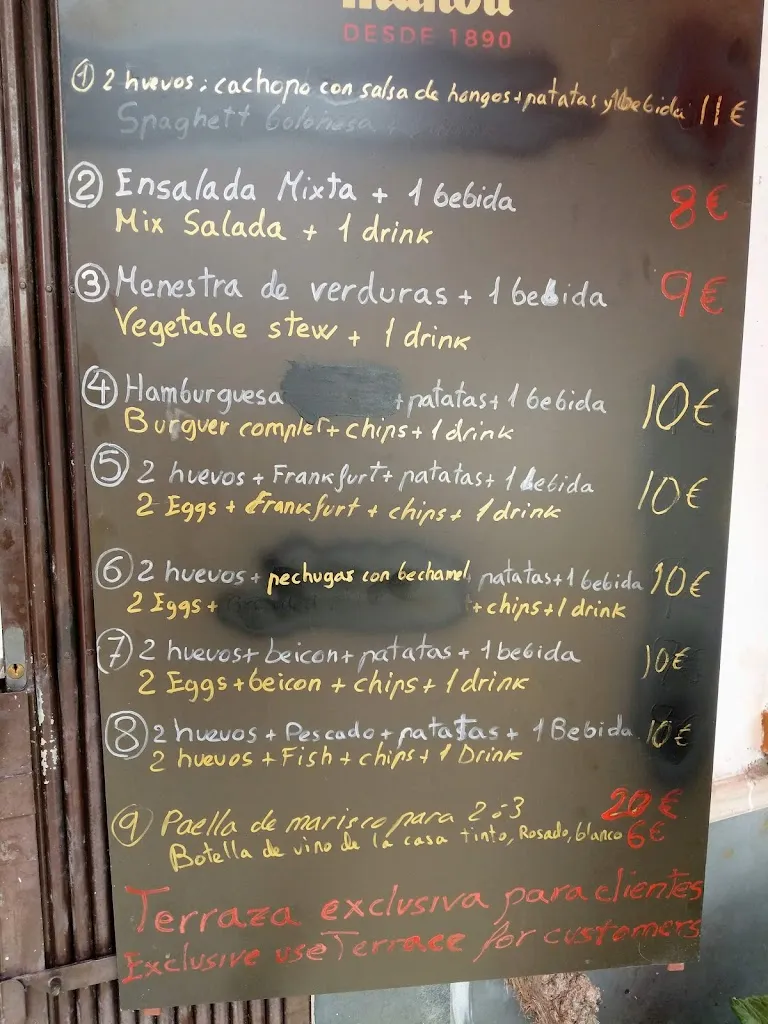 DESDE 1890
① 2 huevos: cachopo con salsa de hongos + patatas y 1 bebida 11€
Spaghett boloñesa
② Ensalada Mixta + 1 bebida 8€
Mix Salada + 1 drink
③ Menestra de verduras + 1 bebida 9€
Vegetable stew + 1 drink
④ Hamburguesa + patatas + 1 bebida 10€
Burguer complet + chips + 1 drink
⑤ 2 huevos + Frankfurt + patatas + 1 bebida 10€
2 Eggs + Frankfurt + chips + 1 drink
⑥ 2 huevos + pechugas con bechamel patatas + 1 bebida 10€
2 Eggs + + chips + 1 drink
⑦ 2 huevos + beicon + patatas + 1 bebida 10€
2 Eggs + beicon + chips + 1 drink
⑧ 2 huevos + Pescado + patatas + 1 Bebida 10€
2 huevos + Fish + chips + 1 Drink
⑨ Paella de marisco para 2 ó 3 20€
Botella de vino de la casa tinto, Rosado, blanco 6€
Terraza exclusiva para clientes
Exclusive use Terrace for customers